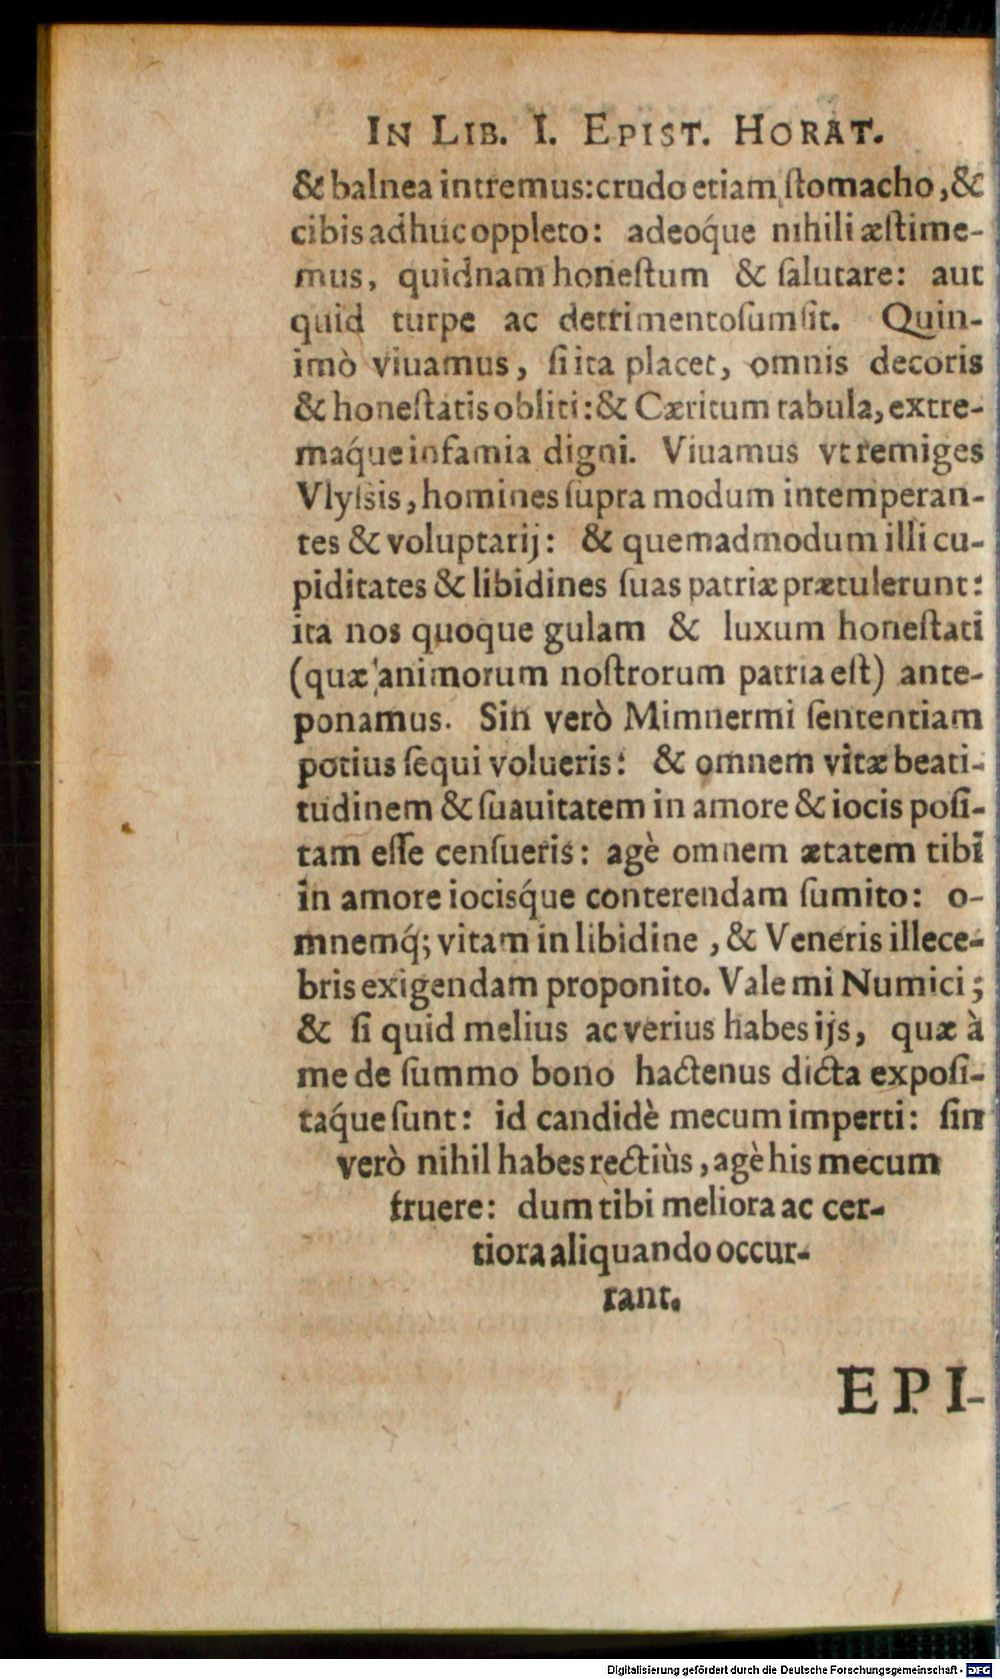 In Lib. I. Epist. Horat.
& balnea intremus: crudo etiam ſtomacho, &
cibis adhuc oppleto: adeoq́ue nihili æſtime-
mus, quidnam honeſtum & ſalutare: aut
quid turpe ac detrimentoſum ſit. Quin-
imò viuamus, ſi ita placet, omnis decoris
& honeſtatis obliti: & Cæritum tabula, extre-
maq́ue infamia digni. Viuamus vt remiges
Vlyſsis, homines ſupra modum intemperan-
tes & voluptarij: & quemadmodum illi cu-
piditates & libidines ſuas patriæ prætulerunt:
ita nos quoque gulam & luxum honeſtati
(quæ animorum noſtrorum patria eſt) ante-
ponamus. Sin verò Mimnermi ſententiam
potius ſequi volueris: & omnem vitæ beati-
tudinem & ſuauitatem in amore & iocis poſi-
tam eſſe cenſueris: agè omnem ætatem tibi
in amore iocisq́ue conterendam ſumito: o-
mnemq́; vitam in libidine, & Veneris illece-
bris exigendam proponito. Vale mi Numici;
& ſi quid melius ac verius habes ijs, quæ à
me de ſummo bono hactenus dicta expoſi-
taq́ue ſunt: id candidè mecum imperti: ſin
verò nihil habes rectiùs, agè his mecum
fruere: dum tibi meliora ac cer-
tiora aliquando occur-
rant.
EPI-
Digitalisierung gefördert durch die Deutsche Forschungsgemeinschaft - DFG